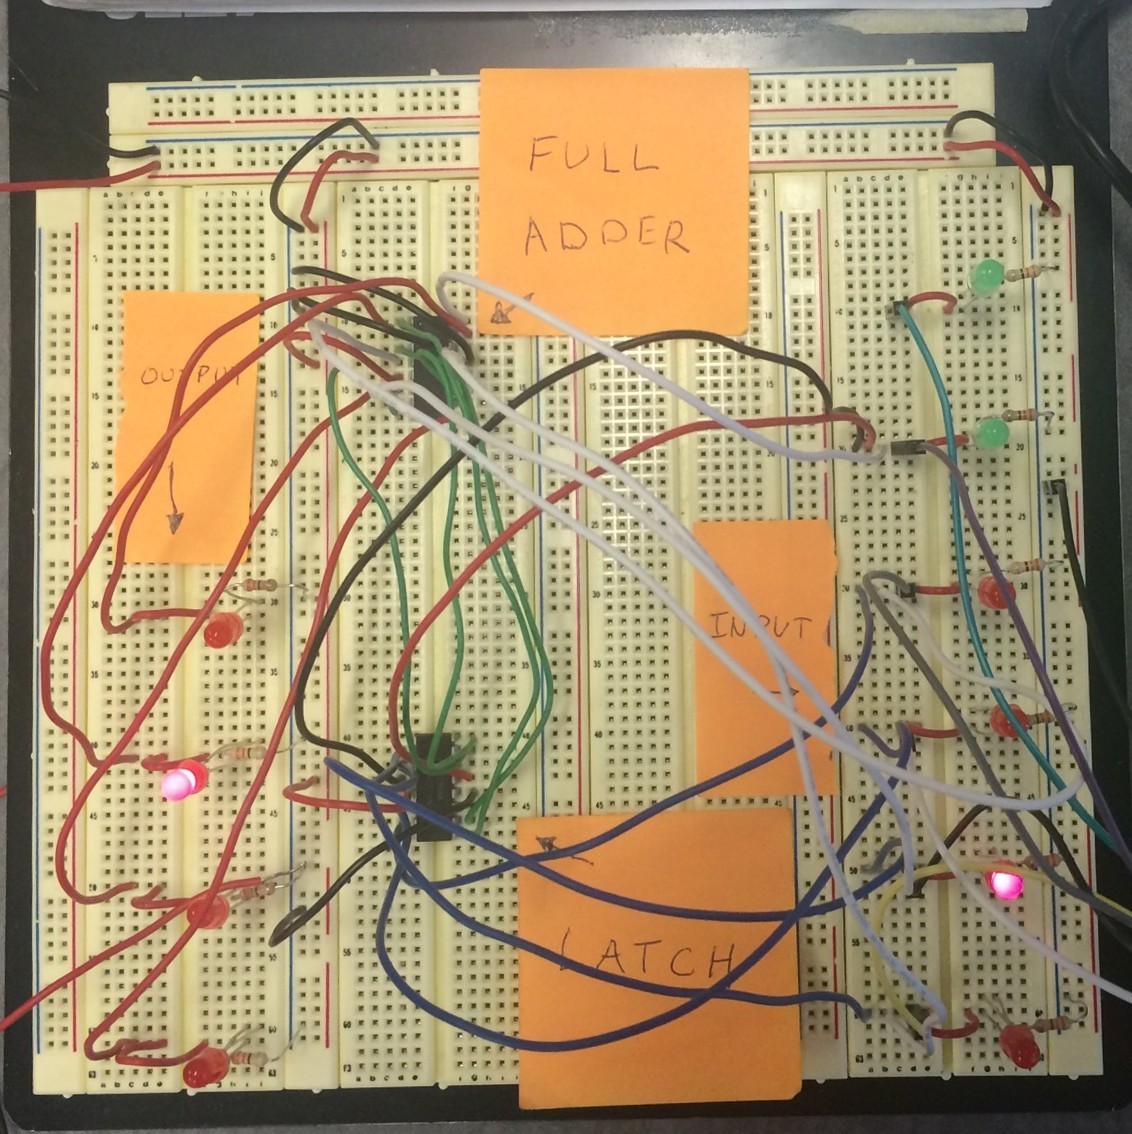 FULL
ADDER
OUTPUT
INPUT
LATCH